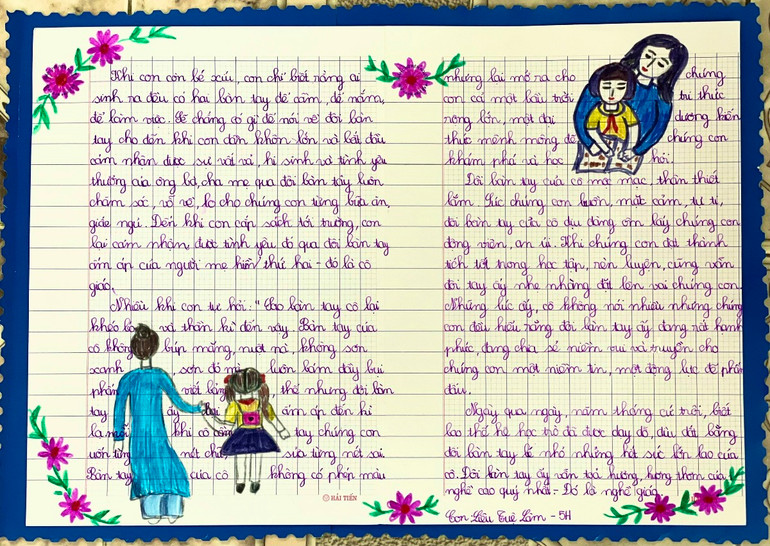 Khi con còn bé xíu, con chỉ biết rằng ai
sinh ra đều có hai bàn tay để cầm, để nắm,
để làm việc. Sẽ chẳng có gì để nói về đôi bàn
tay cho đến khi con dần khôn lớn và bắt đầu
cảm nhận được sự vất vả, hi sinh và tình yêu
thương của ông bà, cha mẹ qua đôi bàn tay luôn
chăm sóc, vỗ về, lo cho chúng con từng bữa ăn,
giấc ngủ. Đến khi con cắp sách tới trường, con
lại cảm nhận được tình yêu đó qua đôi bàn tay
ấm áp của người mẹ hiền thứ hai - đó là cô
giáo.
Nhiều khi con tự hỏi: "Sao bàn tay cô lại
khéo và thần kì đến vậy. Bàn tay của
cô không búp măng, nuột nà, không sơn
xanh sơn đỏ mà luôn lấm đầy bụi
phấn, vết thế nhưng đôi bàn
tay ấy lại ấm áp đến kì
lạ mỗi khi cô cầm tay chúng con
uốn từng nét chữ sửa từng nét sai.
Bàn tay của cô không có phép màu
HẢI TIẾN
nhưng lại mở ra cho chúng
con cả một bầu trời tri thức
rộng lớn, một đại dương kiến
thức mênh mông để chúng con
khám phá và học hỏi.
Đôi bàn tay của cô mộc mạc, thân thiết
lắm. Lúc chúng con buồn, mặc cảm, tự ti,
đôi bàn tay của cô dịu dàng ôm lấy chúng con
động viên, an ủi. Khi chúng con đạt thành
tích tốt trong học tập, rèn luyện, cũng vẫn
đôi tay ấy nhẹ nhàng đặt lên vai chúng con.
Những lúc ấy, cô không nói nhiều nhưng chúng
con đều hiểu rằng đôi bàn tay ấy đang rất hạnh
phúc, đang chia sẻ niềm vui và truyền cho
chúng con một niềm tin, một động lực để phấn
đấu.
Ngày qua ngày, năm tháng cứ trôi, biết
bao thế hệ học trò đã được dạy dỗ, dìu dắt bằng
đôi bàn tay bé nhỏ nhưng hết sức lớn lao của
cô. Đôi bàn tay ấy vẫn toả hương, hương thơm của
nghề cao quý nhất - Đó là nghề giáo.
Con Tuệ Lâm - 5H